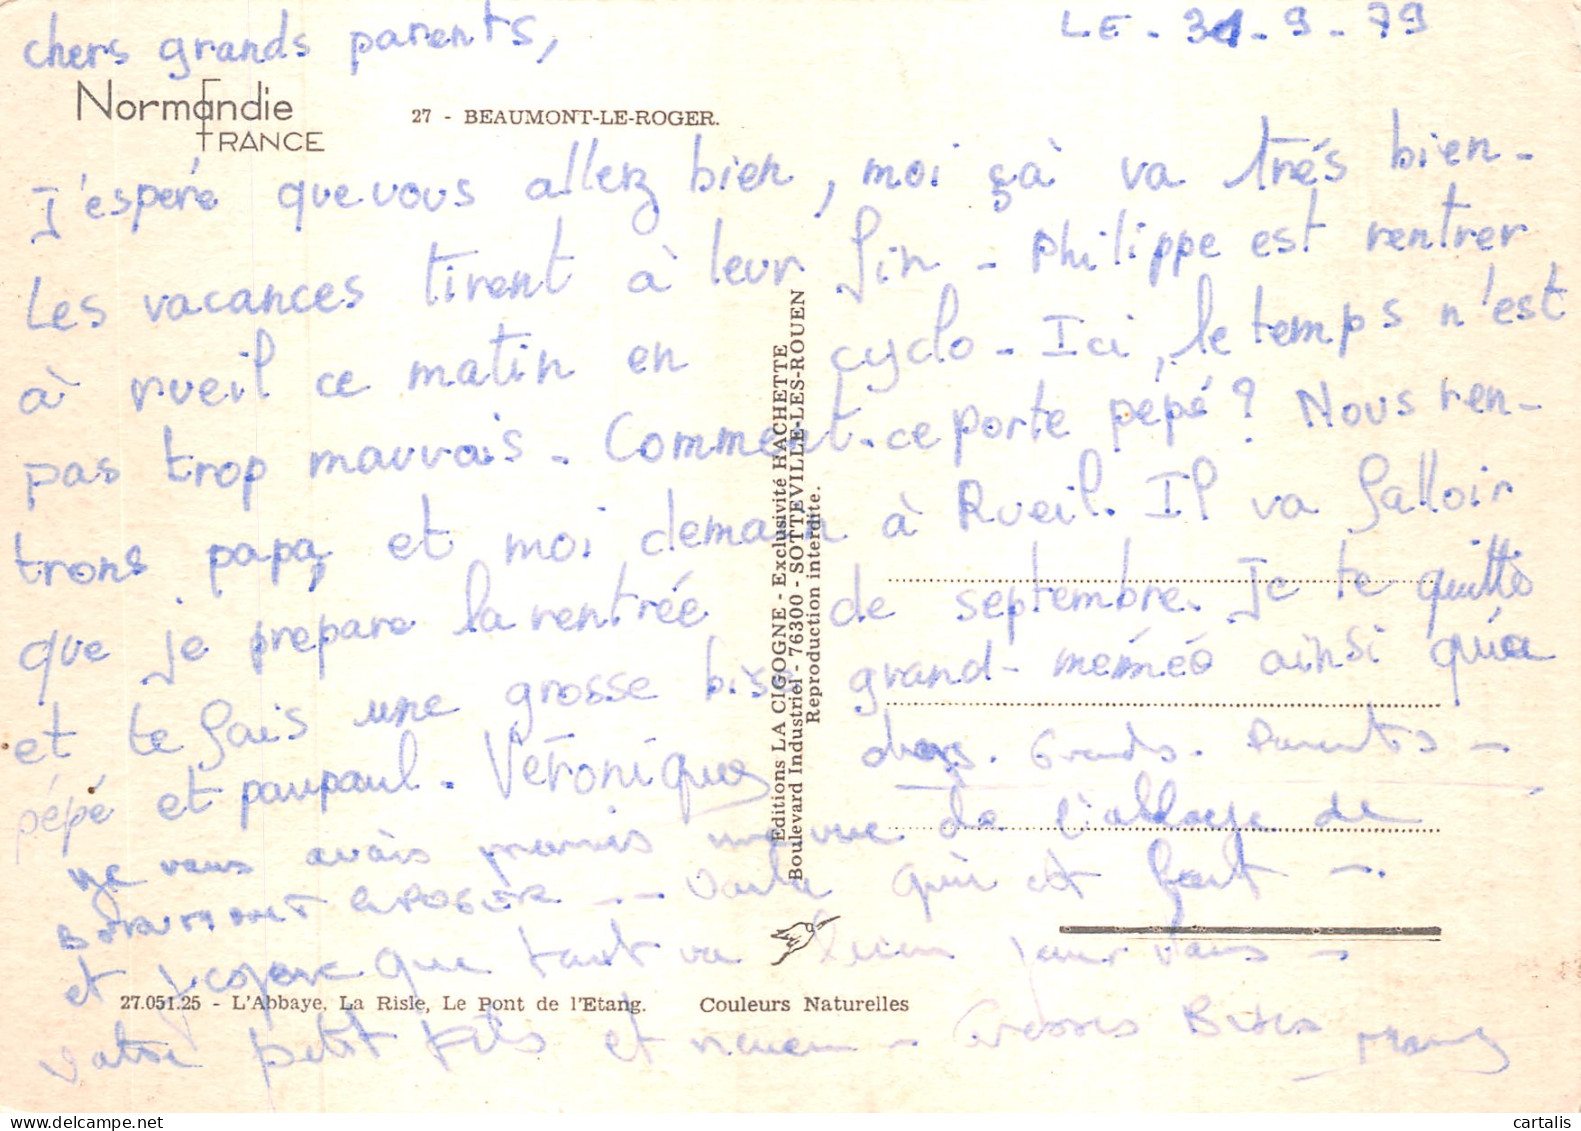 chers grands parents,
LE - 31 - 9 - 79
Normandie
FRANCE
27 - BEAUMONT-LE-ROGER.
J'espéré que vous allez bien, moi çà va trés bien -
Les vacances tirent à leur fin - Philippe est rentrer
à rueil ce matin en cyclo - Ici, le temps n'est
pas trop mauvais - Comment-ce porte pépé ? Nous ren-
trons papa et moi demain à Rueil. Il va falloir
que je prepare la rentrée de septembre. Je te quitte
et te fais une grosse bise grand-mémée ainsi qu'a
pépé et paupaul. Véronique
chers - Grands - Parents -
Je vous avais promis une vue de l'abbaye de
BEAUMONT LE ROGER -- Voila qui est fait -
et j'espere que tout va bien pour vous -
Votre petit fils et neveu - Grosses Bises
27.051.25 - L'Abbaye, La Risle, Le Pont de l'Etang.
Couleurs Naturelles
Editions LA CIGOGNE - Exclusivité HACHETTE
Boulevard Industriel - 76300 - SOTTEVILLE-LES-ROUEN
Reproduction interdite.
cartalis.com